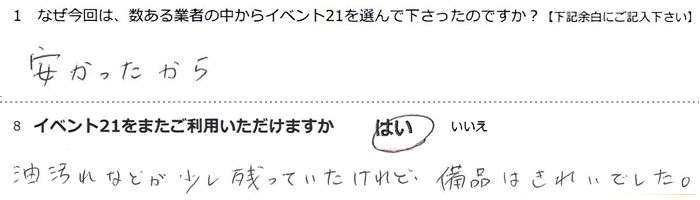 1 なぜ今回は、数ある業者の中からイベント21を選んで下さったのですか？【下記余白にご記入下さい】
安かったから
8 イベント21をまたご利用いただけますか はい いいえ
油汚れなどが少し残っていたけれど、備品はきれいでした。